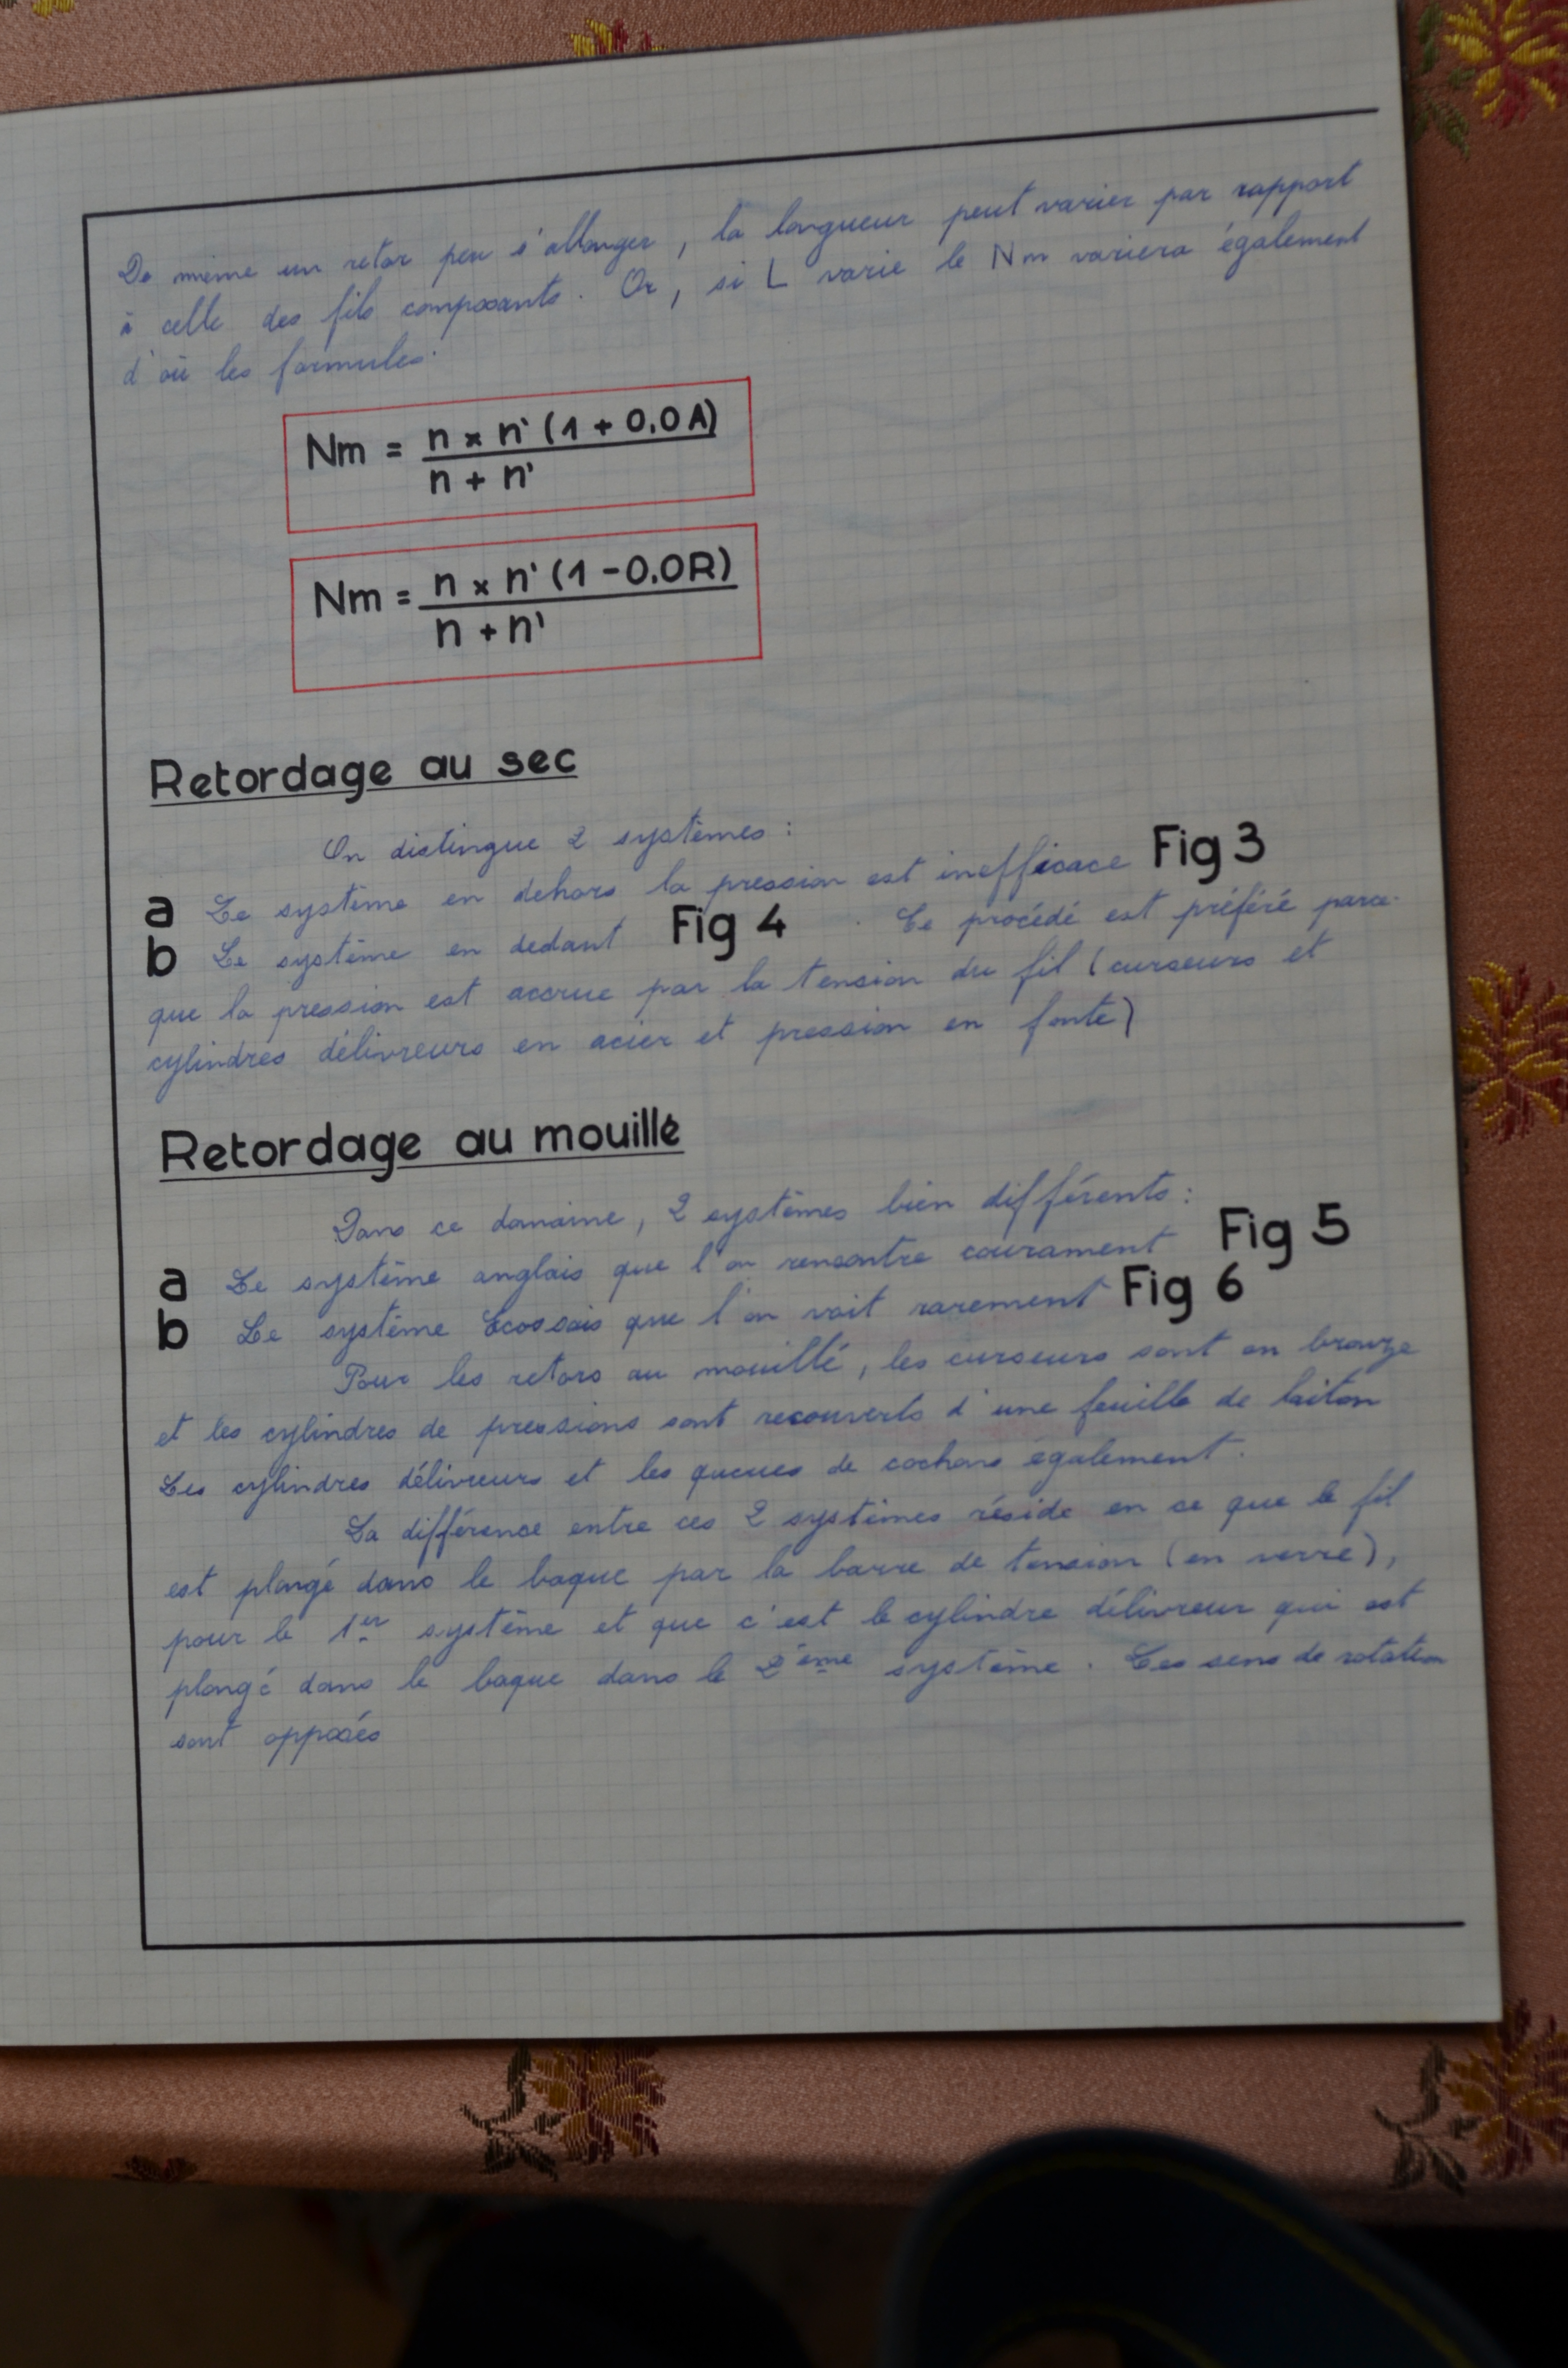 De même un retor peu s'allonger, la longueur peut varier par rapport
à celle des fils composants. Or, si L varie le Nm variera également
d'où les formules:
Nm = n x n' (1 + 0.0A)
n + n'
Nm = n x n' (1 - 0.0R)
n + n'
Retordage au sec
On distingue 2 systèmes :
a Le système en dehors la pression est inefficace Fig 3
b Le système en dedant Fig 4 . Ce procédé est préféré parce-
que la pression est accrue par la tension du fil (curseurs et
cylindres délivreurs en acier et pression en fonte)
Retordage au mouillé
Dans ce domaine, 2 systèmes bien différents :
a Le système anglais que l'on rencontre courament Fig 5
b Le système Ecossais que l'on voit rarement Fig 6
Pour les retors au mouillé, les curseurs sont en bronze
et les cylindres de pressions sont recouverts d'une feuille de laiton
Les cylindres délivreurs et les queues de cochons également.
La différence entre ces 2 systèmes réside en ce que le fil
est plongé dans le baque par la barre de tension (en verre),
pour le 1er système et que c'est le cylindre délivreur qui est
plongé dans le baque dans le 2ème système. Les sens de rotation
sont opposés